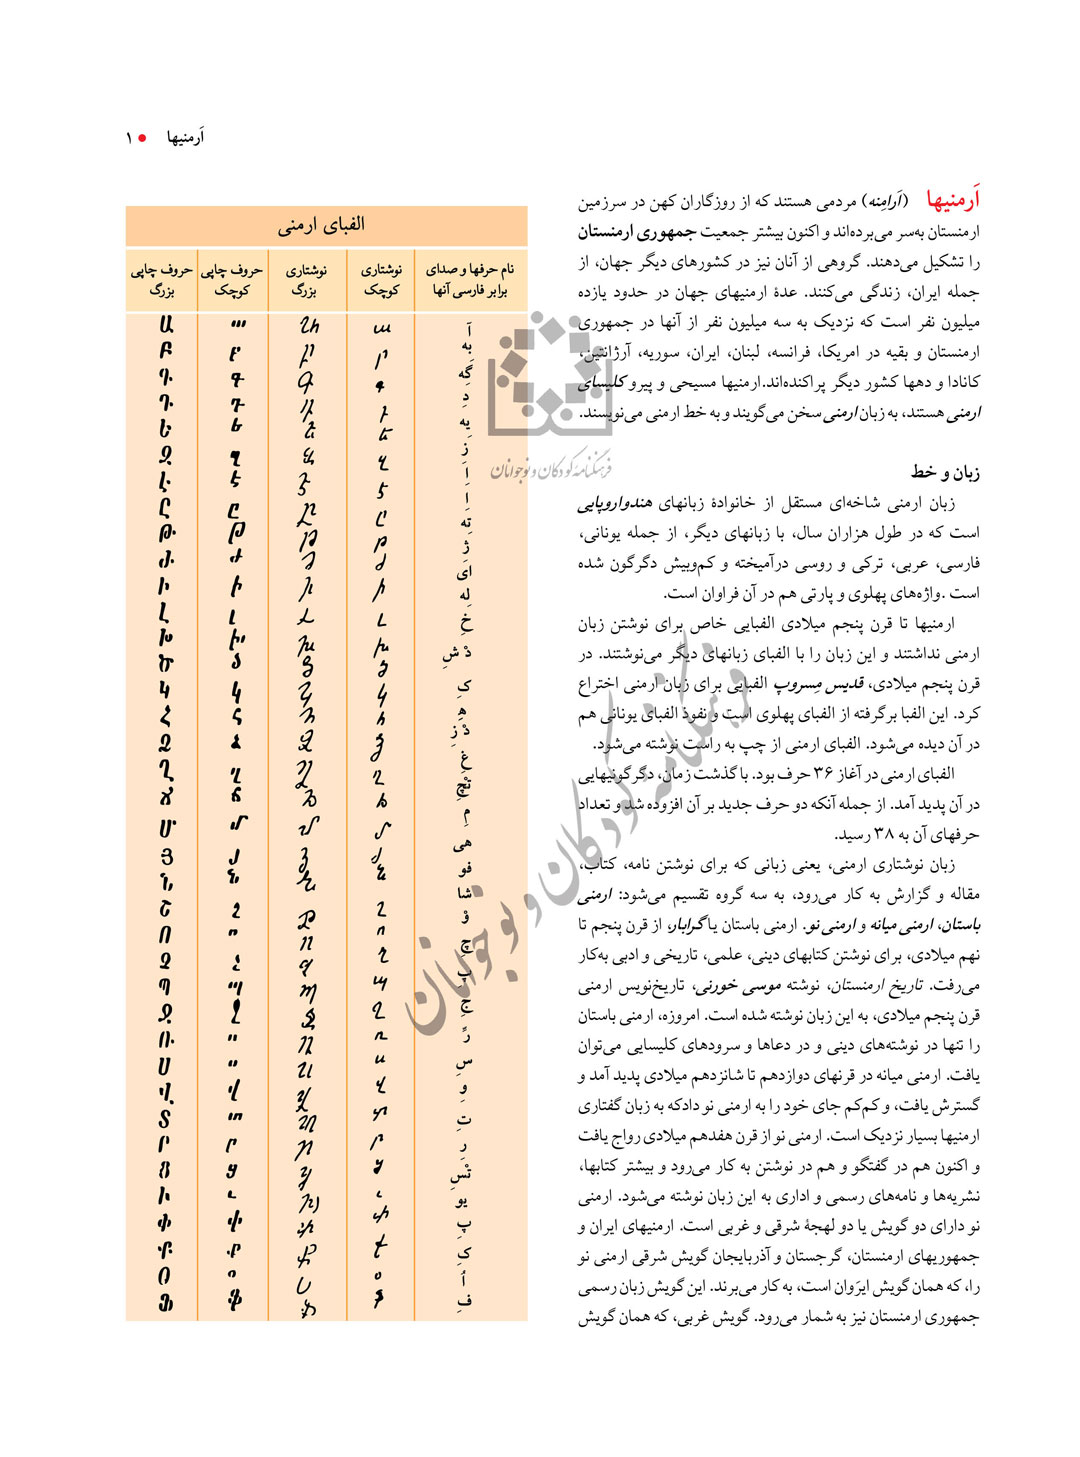 اَرمنیها ● ۱
اَرمنیها (اَرامِنه) مردمی هستند که از روزگاران کهن در سرزمین
ارمنستان به‌سر می‌برده‌اند و اکنون بیشتر جمعیت جمهوری ارمنستان
را تشکیل می‌دهند. گروهی از آنان نیز در کشورهای دیگر جهان، از
جمله ایران، زندگی می‌کنند. عدهٔ ارمنیهای جهان در حدود یازده
میلیون نفر است که نزدیک به سه میلیون نفر از آنها در جمهوری
ارمنستان و بقیه در امریکا، فرانسه، لبنان، ایران، سوریه، آرژانتین،
کانادا و دهها کشور دیگر پراکنده‌اند.ارمنیها مسیحی و پیرو کلیسای
ارمنی هستند، به زبان ارمنی سخن می‌گویند و به خط ارمنی می‌نویسند.
زبان و خط
زبان ارمنی شاخه‌ای مستقل از خانوادهٔ زبانهای هندواروپایی
است که در طول هزاران سال، با زبانهای دیگر، از جمله یونانی،
فارسی، عربی، ترکی و روسی درآمیخته و کم‌وبیش دگرگون شده
است .واژه‌های پهلوی و پارتی هم در آن فراوان است.
ارمنیها تا قرن پنجم میلادی الفبایی خاص برای نوشتن زبان
ارمنی نداشتند و این زبان را با الفبای زبانهای دیگر می‌نوشتند. در
قرن پنجم میلادی، قدیس مِسروپ الفبایی برای زبان ارمنی اختراع
کرد. این الفبا برگرفته از الفبای پهلوی است و نفوذ الفبای یونانی هم
در آن دیده می‌شود. الفبای ارمنی از چپ به راست نوشته می‌شود.
الفبای ارمنی در آغاز ۳۶ حرف بود. با گذشت زمان، دگرگونیهایی
در آن پدید آمد. از جمله آنکه دو حرف جدید بر آن افزوده شد و تعداد
حرفهای آن به ۳۸ رسید.
زبان نوشتاری ارمنی، یعنی زبانی که برای نوشتن نامه، کتاب،
مقاله و گزارش به کار می‌رود، به سه گروه تقسیم می‌شود: ارمنی
باستان، ارمنی میانه و ارمنی نو. ارمنی باستان یا گرابار، از قرن پنجم تا
نهم میلادی، برای نوشتن کتابهای دینی، علمی، تاریخی و ادبی به‌کار
می‌رفت. تاریخ ارمنستان، نوشته موسی خورنی، تاریخ‌نویس ارمنی
قرن پنجم میلادی، به این زبان نوشته شده است. امروزه، ارمنی باستان
را تنها در نوشته‌های دینی و در دعاها و سرودهای کلیسایی می‌توان
یافت. ارمنی میانه در قرنهای دوازدهم تا شانزدهم میلادی پدید آمد و
گسترش یافت، و کم‌کم جای خود را به ارمنی نو دادکه به زبان گفتاری
ارمنیها بسیار نزدیک است. ارمنی نو از قرن هفدهم میلادی رواج یافت
و اکنون هم در گفتگو و هم در نوشتن به کار می‌رود و بیشتر کتابها،
نشریه‌ها و نامه‌های رسمی و اداری به این زبان نوشته می‌شود. ارمنی
نو دارای دو گویش یا دو لهجهٔ شرقی و غربی است. ارمنیهای ایران و
جمهوریهای ارمنستان، گرجستان و آذربایجان گویش شرقی ارمنی نو
را، که همان گویش ایرَوان است، به کار می‌برند. این گویش زبان رسمی
جمهوری ارمنستان نیز به شمار می‌رود. گویش غربی، که همان گویش
الفبای ارمنی
نام حرفها و صدای برابر فارسی آنها | نوشتاری کوچک | نوشتاری بزرگ | حروف چاپی کوچک | حروف چاپی بزرگ
آ ա Ա ա Ա
به բ Բ բ Բ
گه գ Գ գ Գ
دِ դ Դ դ Դ
یه ե Ե ե Ե
زِ զ Զ զ Զ
اِ է Է է Է
اِ ը Ը ը Ը
ته թ Թ թ Թ
ژِ ժ Ժ ժ Ժ
ای ի Ի ի Ի
له լ Լ լ Լ
خِ խ Խ խ Խ
دْشِ ծ Ծ ծ Ծ
کِ կ Կ կ Կ
هِ հ Հ հ Հ
دْزِ ձ Ձ ձ Ձ
غِ ղ Ղ ղ Ղ
تْچِ ճ Ճ ճ Ճ
مِ մ Մ մ Մ
هی յ Յ յ Յ
فو ն Ն ն Ն
شا շ Շ շ Շ
وْ ո Ո ո Ո
چِ չ Չ չ Չ
پِ պ Պ պ Պ
جِ ջ Ջ ջ Ջ
رّ ռ Ռ ռ Ռ
سِ ս Ս ս Ս
وِ վ Վ վ Վ
تِ տ Տ տ Տ
رِ ր Ր ր Ր
تْسِ ց Ց ց Ց
یو ւ Ւ ւ Ւ
پِ փ Փ փ Փ
کِ ք Ք ք Ք
اُ օ Օ օ Օ
فِ ֆ Ֆ ֆ Ֆ
فرهنگنامهٔ کودکان و نوجوانان
فرهنگنامه کودکان و نوجوانان